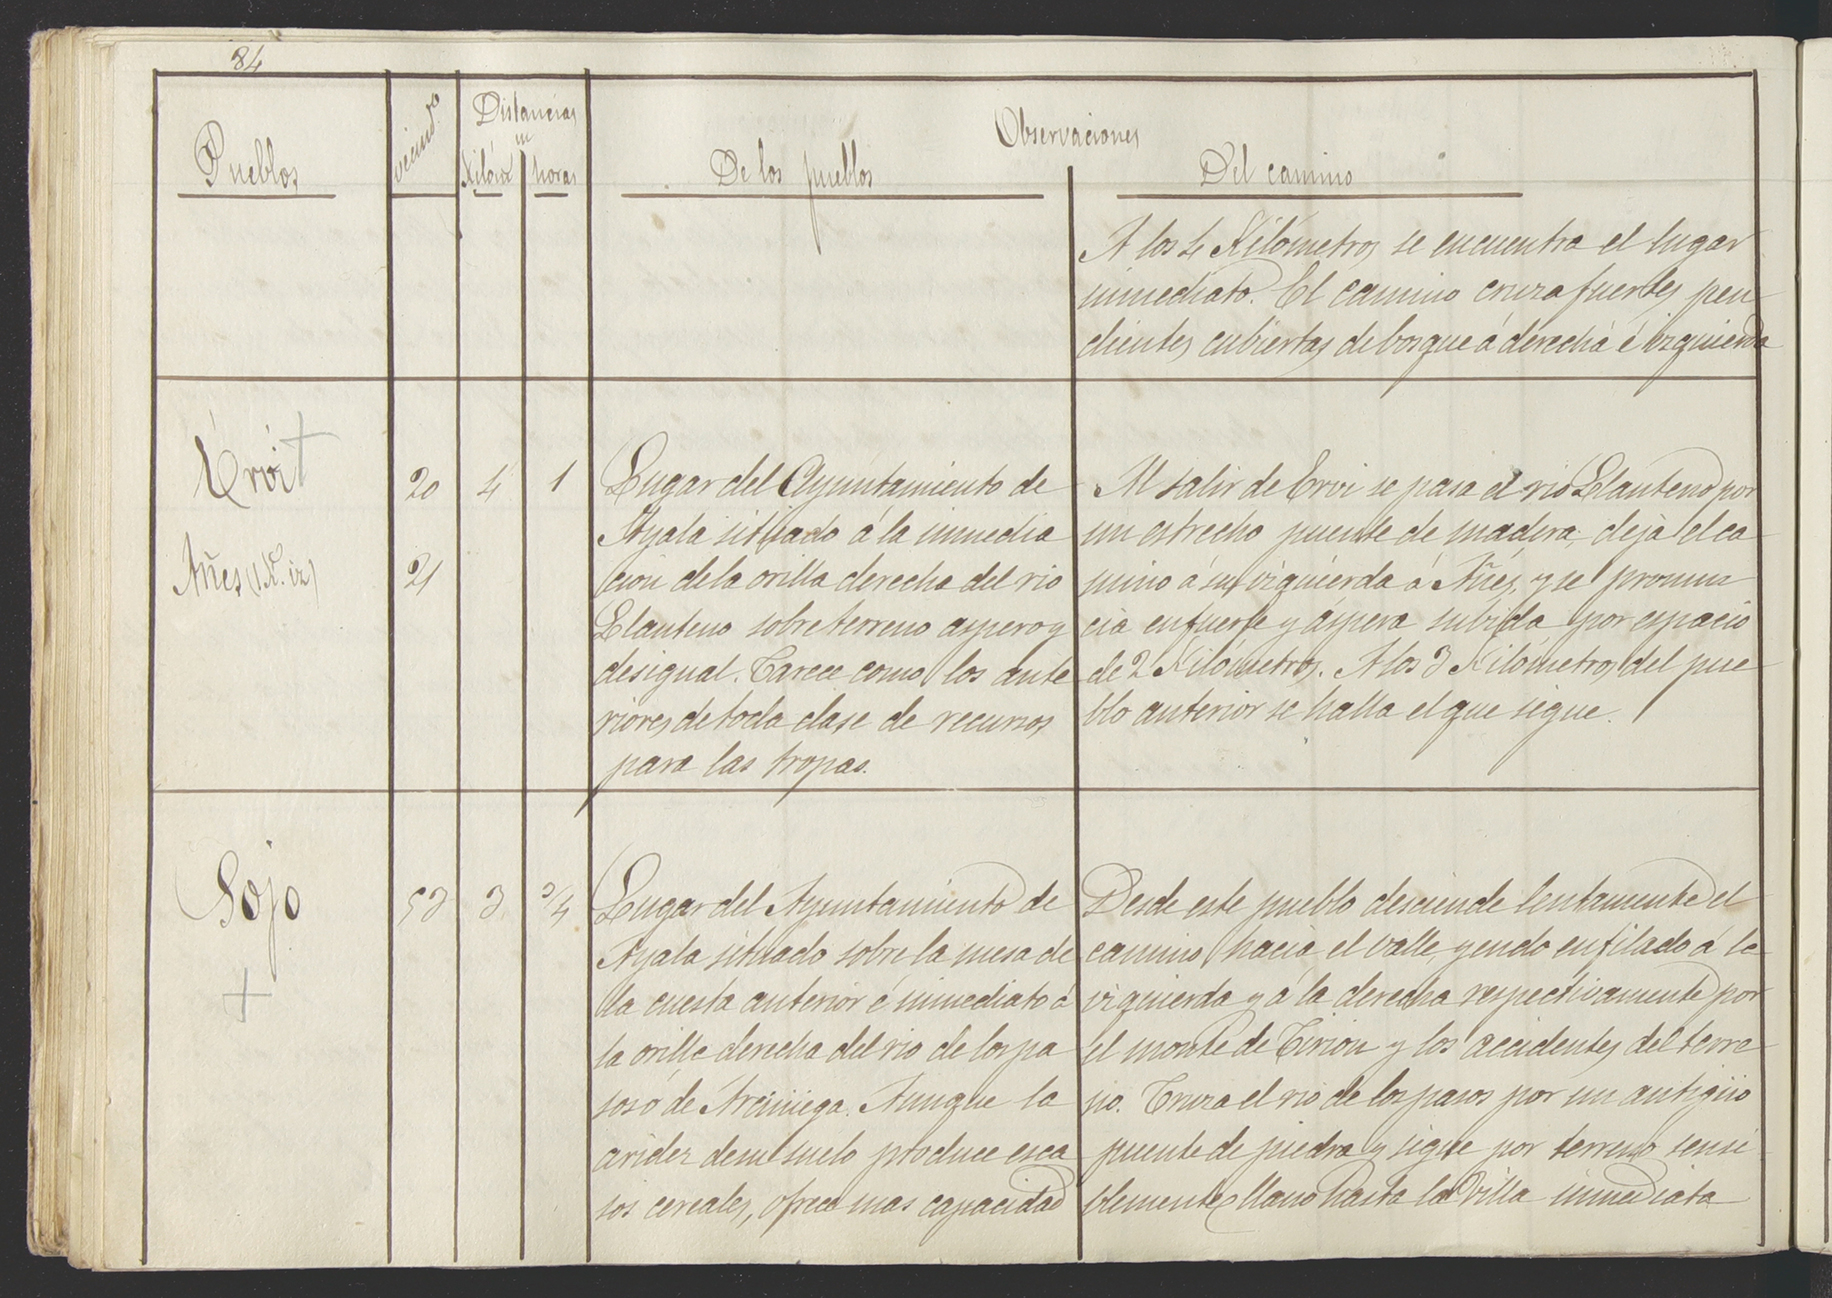 84
Pueblos
vecind.º
Distancias
en
Kilóm
horas
Observaciones
De los pueblos
Del camino
A los 4 Kilómetros se encuentra el lugar
inmediato. El camino cruza fuertes pen
dientes cubiertas de bosque á derecha é izquierda
Ervi +
20
4
1
Añes (1 K. iz)
21
Lugar del Ayuntamiento de
Ayala situado á la inmedia
cion de la orilla derecha del rio
Llanteno sobre terreno aspero y
desigual. Carece como los ante
riores de toda clase de recursos
para las tropas.
Al salir de Ervi se pasa el rio Llanteno por
un estrecho puente de madera, deja el ca
mino á su izquierda á Añes, y se pronun
cia en fuerte y áspera subida por espacio
de 2 Kilómetros. A los 3 Kilómetros del pue
blo anterior se halla el que sigue.
Sojo
+
53
3
3/4
Lugar del Ayuntamiento de
Ayala situado sobre la mesa de
la cuesta anterior é inmediato á
la orilla derecha del rio de los pa
sos ó de Arciniega. Aunque la
aridez de su suelo produce esca
sos cereales, ofrece mas capacidad
Desde este pueblo desciende lentamente el
camino hacia el valle, yendo enfilado á la
izquierda y á la derecha respectivamente por
el monte de y los accidentes del terre
no. Cruza el rio de los pasos por un antigüo
puente de piedra y sigue por terreno sensi
blemente llano hasta la villa inmediata